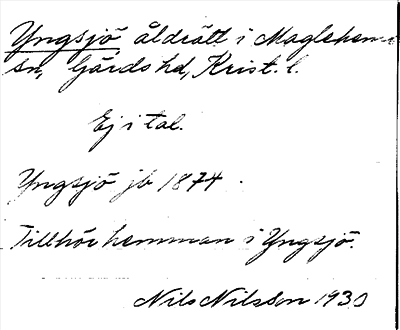 Yngsjö åldrätt i Maglehems
sn, Gärds hd, Krist. l.
Ej i tal.
Yngsjö jb 1874.
Tillhör hemman i Yngsjö.
Nils Nilsson 1930